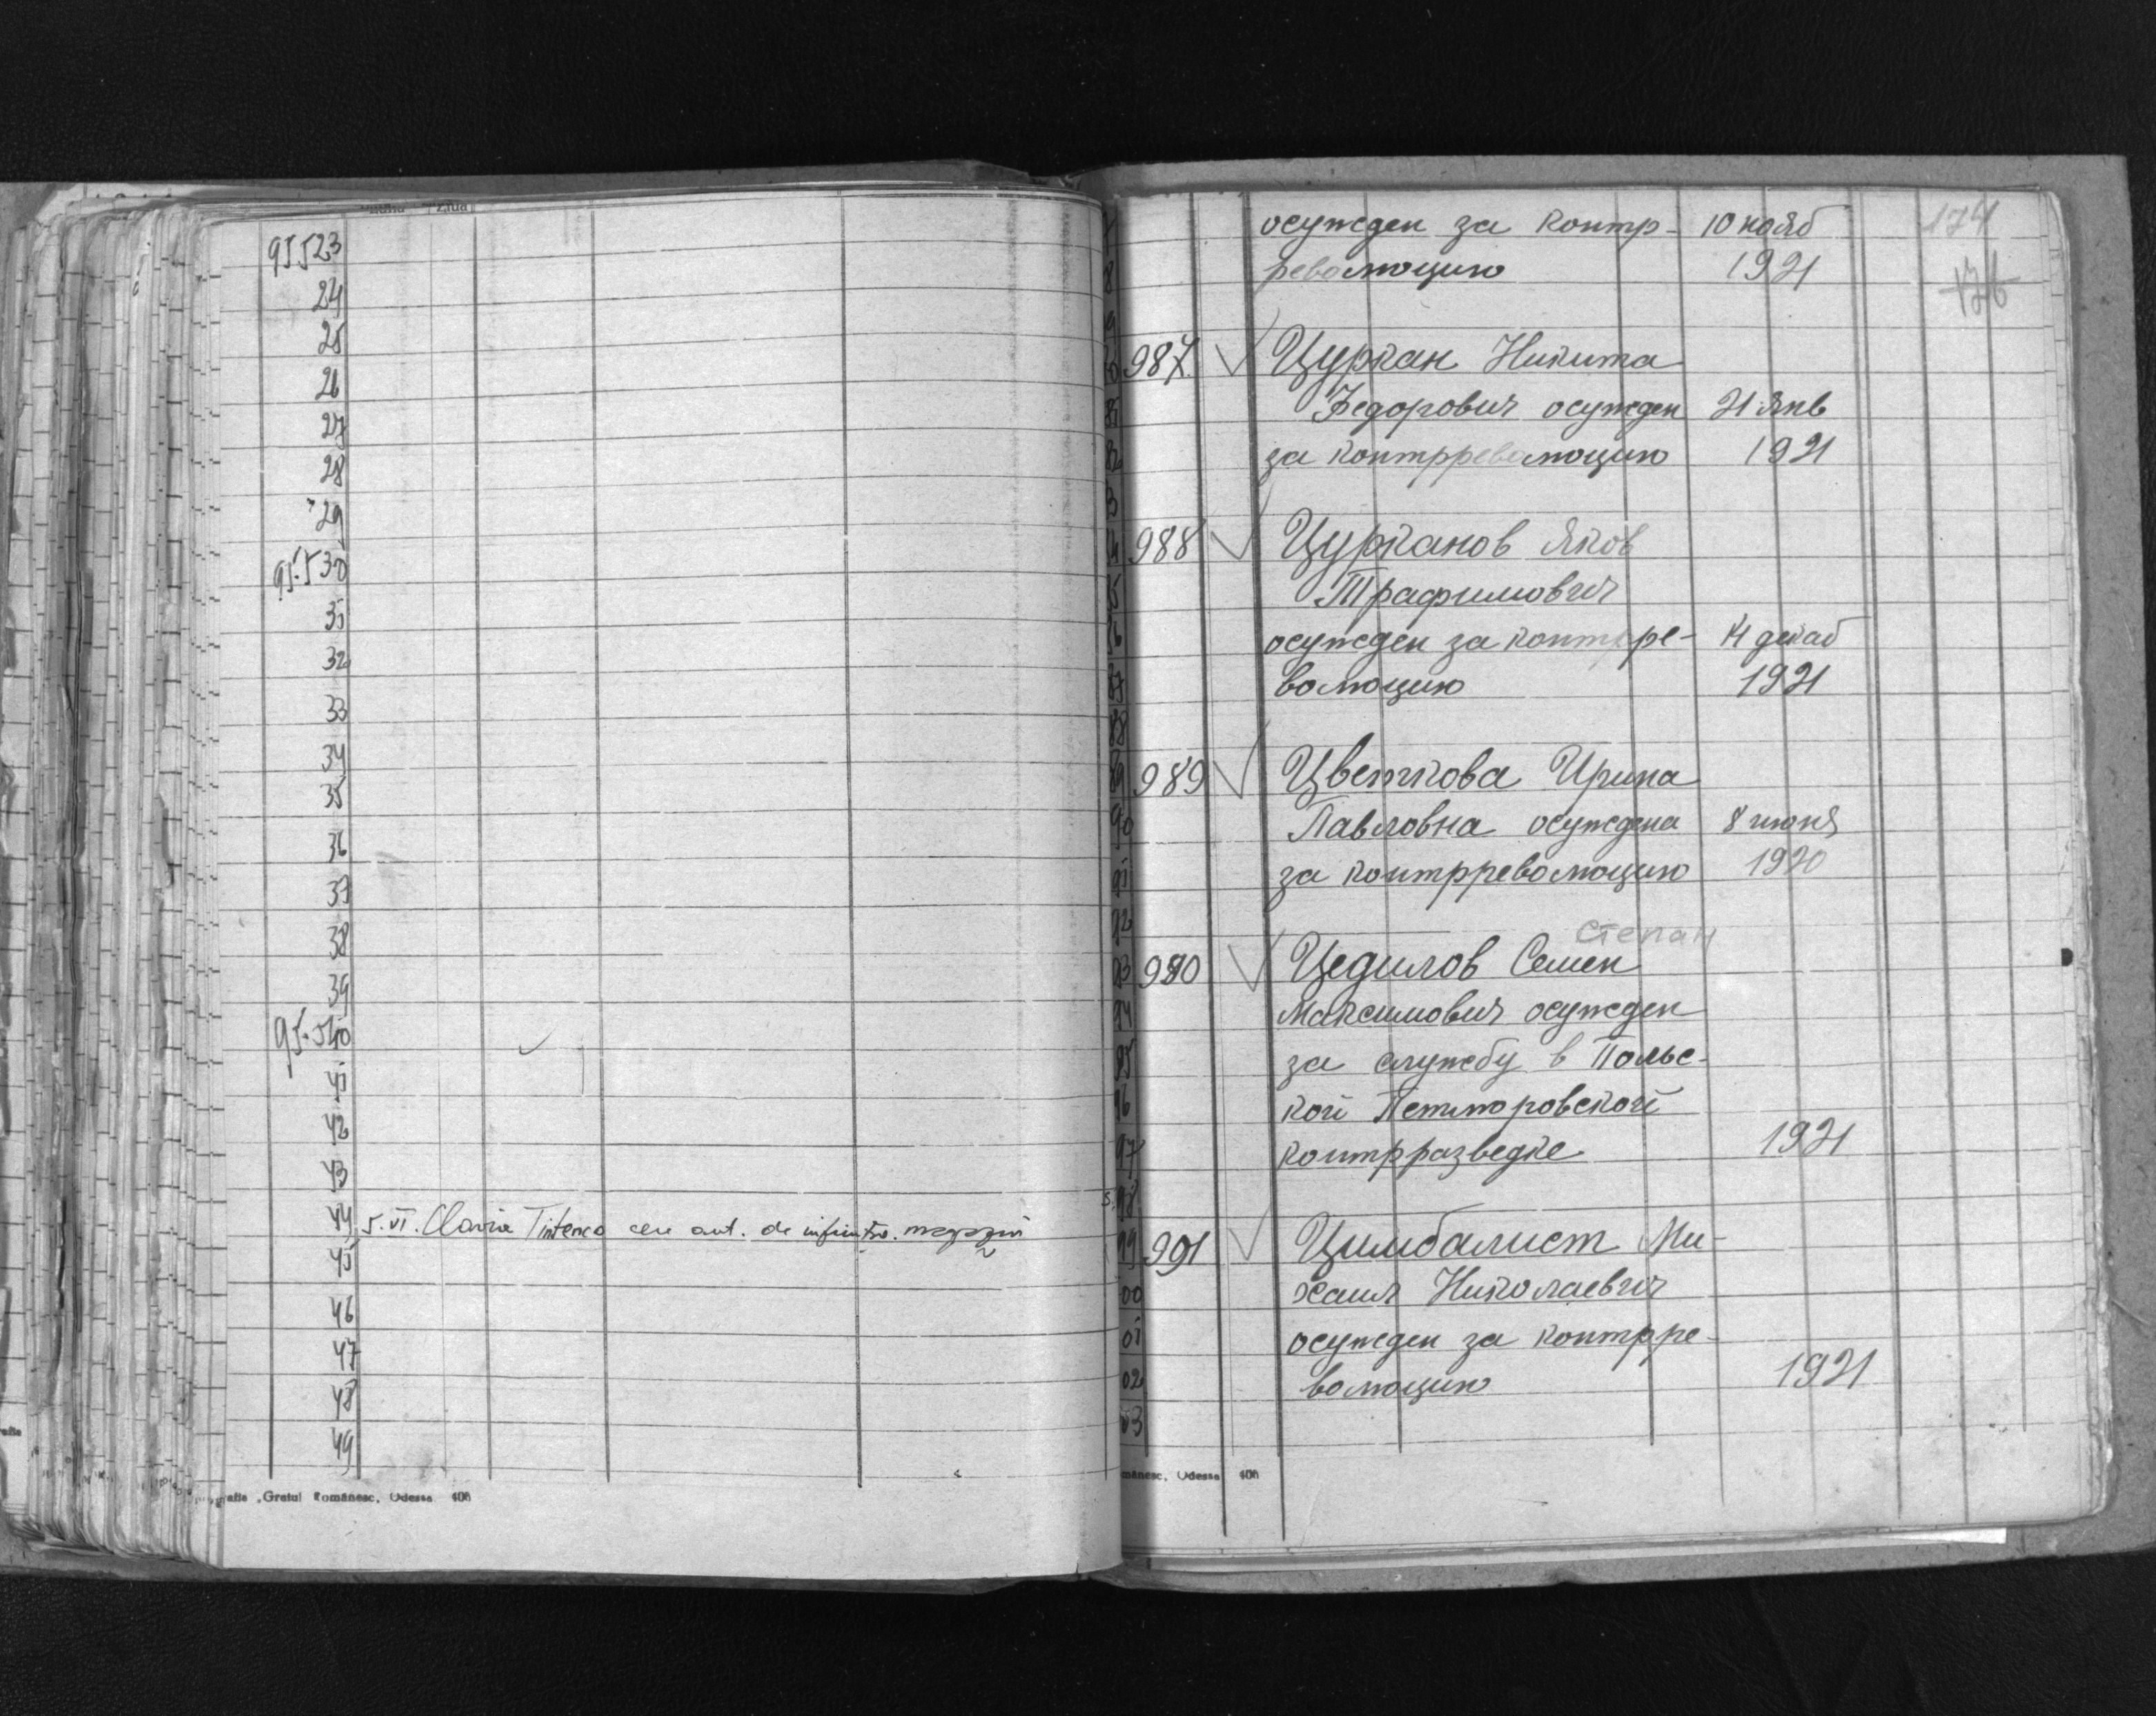 Ziua
95523
24
25
26
27
28
29
95.530
31
32
33
34
35
36
37
38
39
95.540
41
42
43
44 5.VI. Clavia Tintenco cere aut. de infiintar. magazin
45
46
47
48
49
„Gratul Românesc, Odessa 406
174
126
осужден за контр- 10 нояб
революцию 1921
987. Цуркан Никита
Федорович осужден 21 янв
за контрреволюцию 1921
988 Цурканов Яков
Трафимович
осужден за контрре- 14 декаб
волюцию 1921
989 Цветкова Ирина
Павловна осуждена 8 июня
за контрреволюцию 1920
Степан
990 Цедилов Семен
Максимович осужден
за службу в Польс-
кой Петлюровской
контрразведке 1921
991 Цимбалист Ми-
хаил Николаевич
осужден за контрре-
волюцию 1921
mânesc, Odessa 406